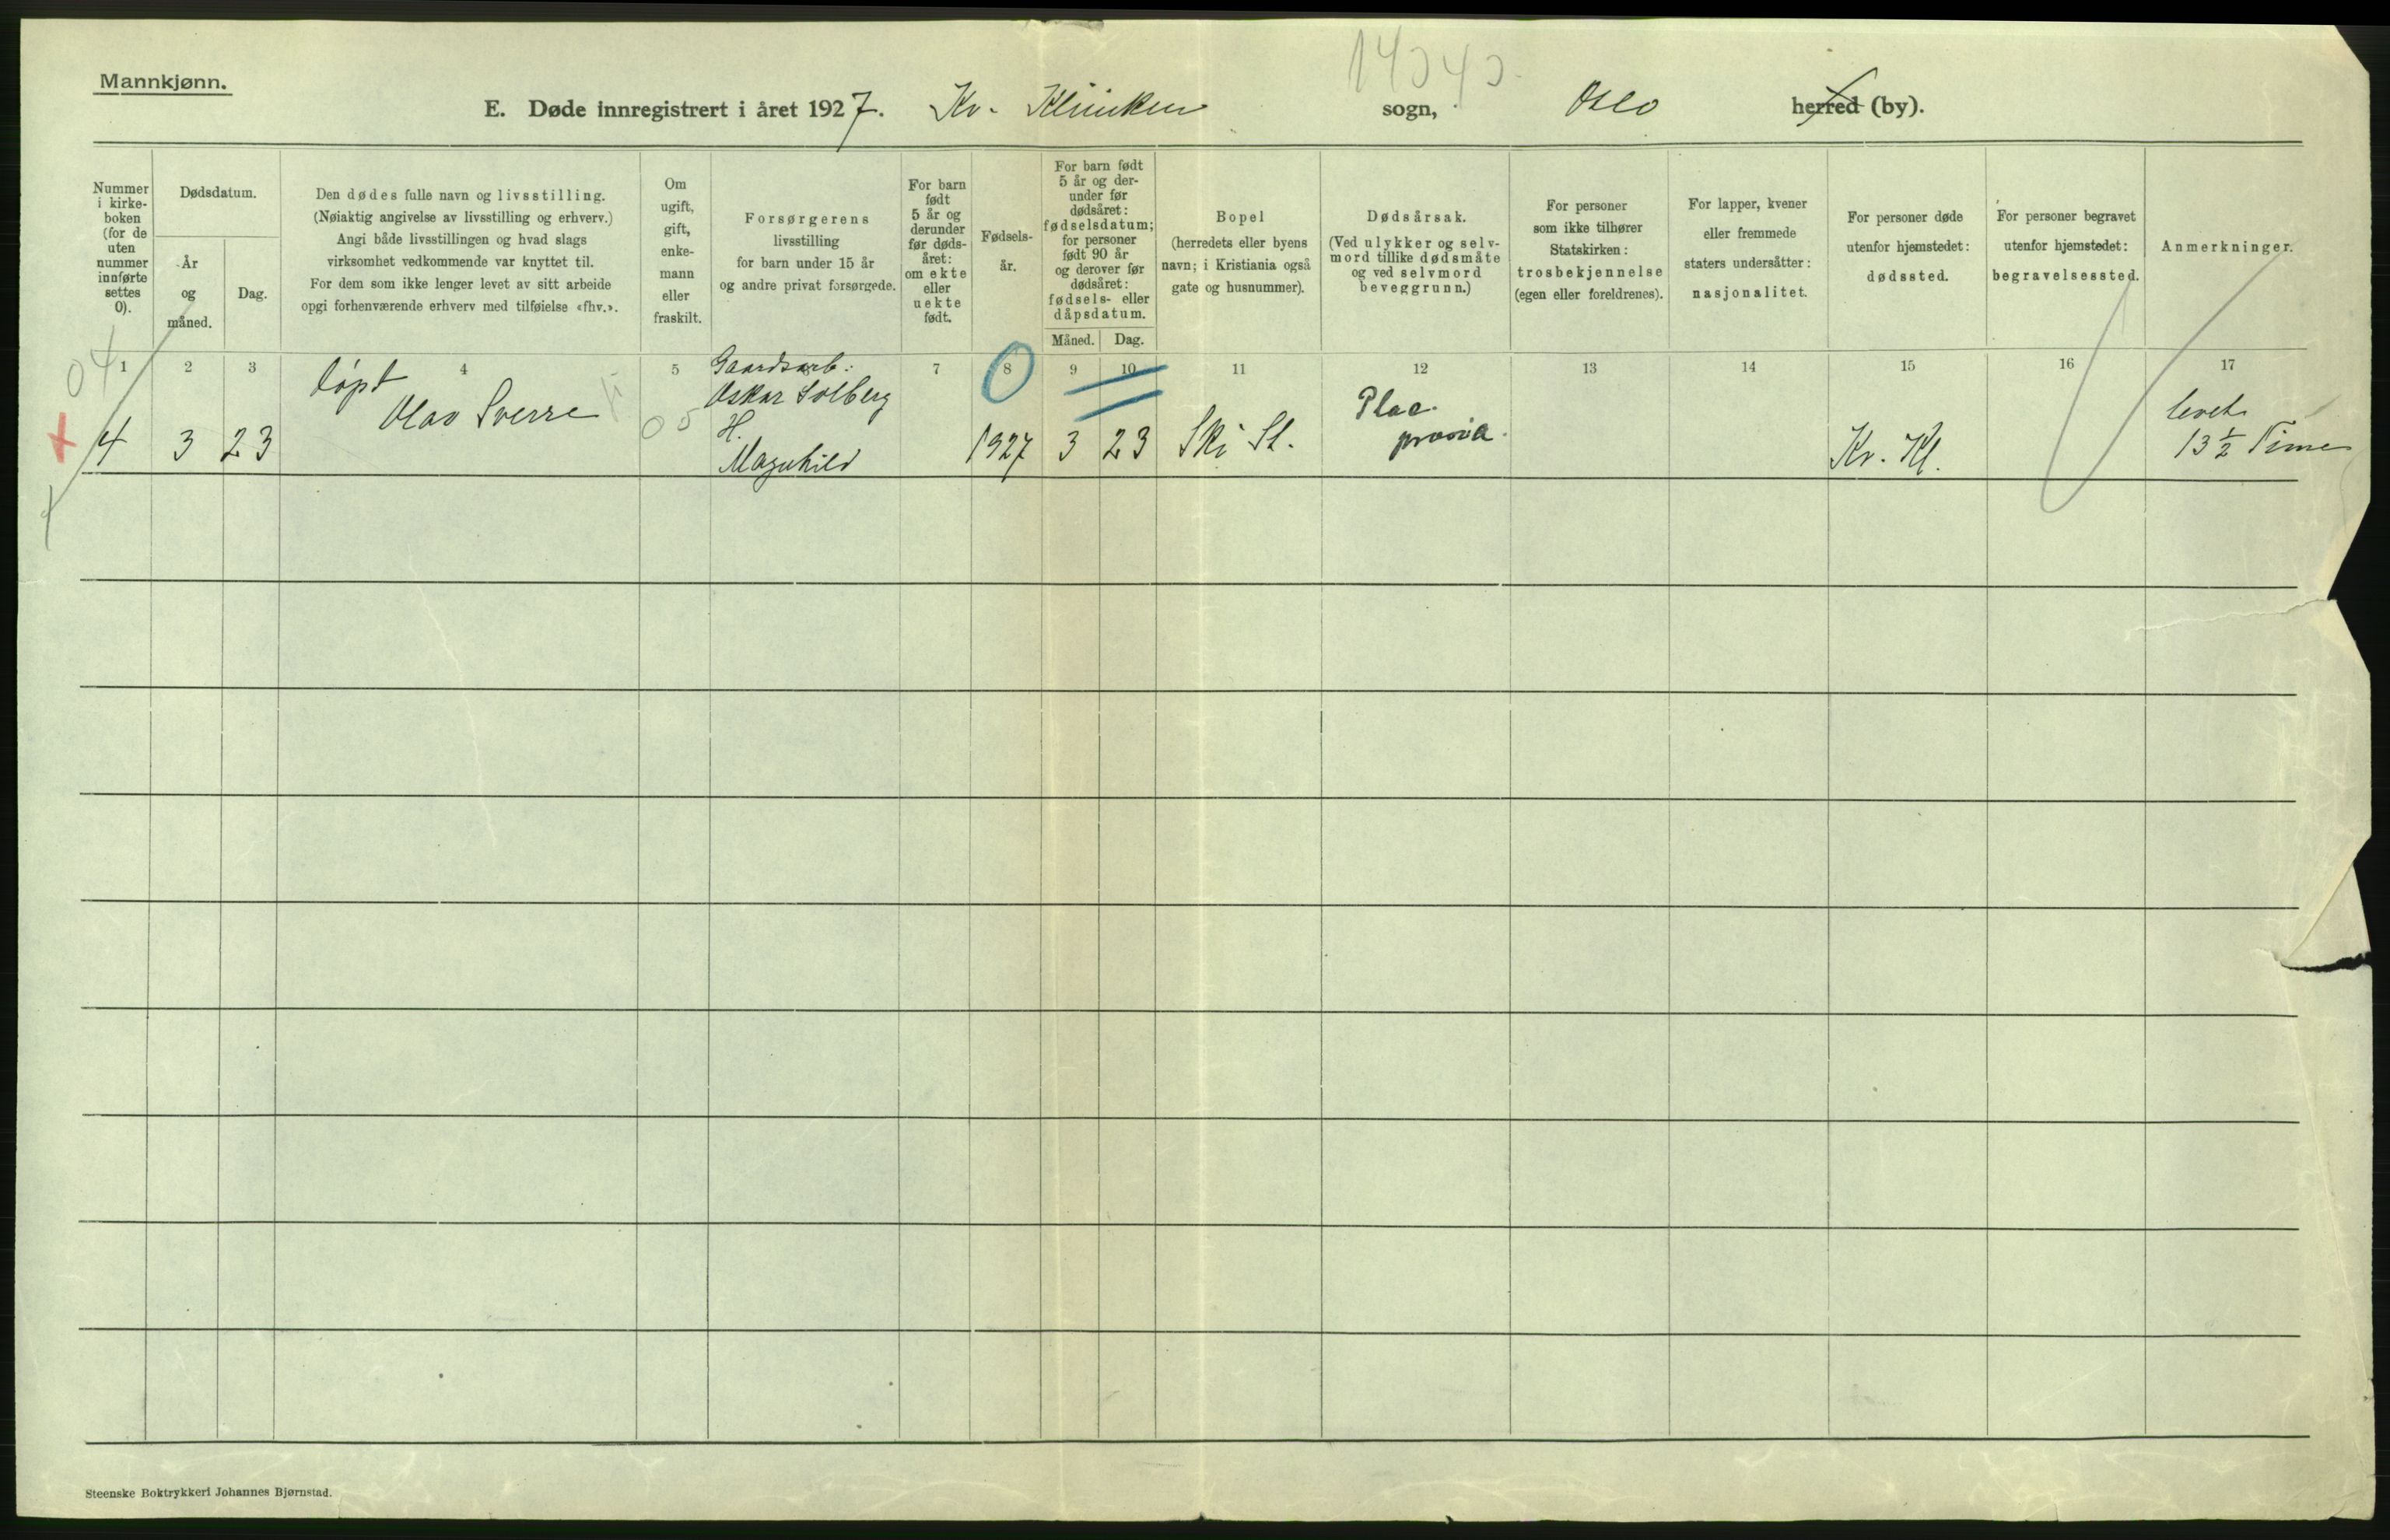 Mannkjønn.
E. Døde innregistrert i året 1927. Kv. Klinken sogn, Oslo herred (by).
Nummer
i kirke-
boken
(for de
uten
nummer
innførte
settes
0).
Dødsdatum.
År
og
måned.
Dag.
Den dødes fulle navn og livsstilling.
(Nøiaktig angivelse av livsstilling og erhverv.)
Angi både livsstillingen og hvad slags
virksomhet vedkommende var knyttet til.
For dem som ikke lenger levet av sitt arbeide
opgi forhenværende erhverv med tilføielse «fhv.».
Om
ugift,
gift,
enke-
mann
eller
fraskilt.
Forsørgerens
livsstilling
for barn under 15 år
og andre privat forsørgede.
For barn
født
5 år og
derunder
før døds-
året:
om ekte
eller
uekte
født.
Fødsels-
år.
For barn født
5 år og der-
under før
dødsåret:
fødselsdatum;
for personer
født 90 år
og derover før
dødsåret:
fødsels- eller
dåpsdatum.
Måned. Dag.
Bopel
(herredets eller byens
navn; i Kristiania også
gate og husnummer).
Dødsårsak.
(Ved ulykker og selv-
mord tillike dødsmåte
og ved selvmord
beveggrunn.)
For personer
som ikke tilhører
Statskirken:
trosbekjennelse
(egen eller foreldrenes).
For lapper, kvener
eller fremmede
staters undersåtter:
nasjonalitet.
For personer døde
utenfor hjemstedet:
dødssted.
For personer begravet
utenfor hjemstedet:
begravelsessted.
Anmerkninger.
04
1 2 3 4 5 7 8 9 10 11 12 13 14 15 16 17
4 3 23
døpt
Olav Sverre
05
Gaardsarb.:
Oskar Solberg
H.
Magnhild
0
1927 3 23 Ski St.
Plac.
prævia.
Kr. Kl.
levet
13 1/2 Time
Steenske Boktrykkeri Johannes Bjørnstad.